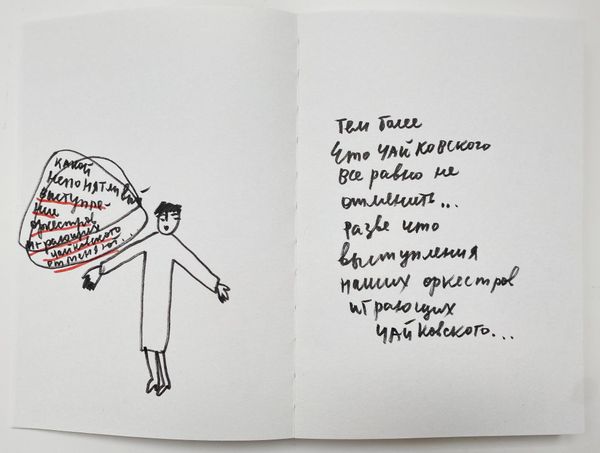 какой
непонятливый
выступле-
ние
оркестров
играющих
Чайковского
отменяют...
тем более
что Чайковского
все равно не
отменить...
разве что
выступления
наших оркестров
играющих
Чайковского...